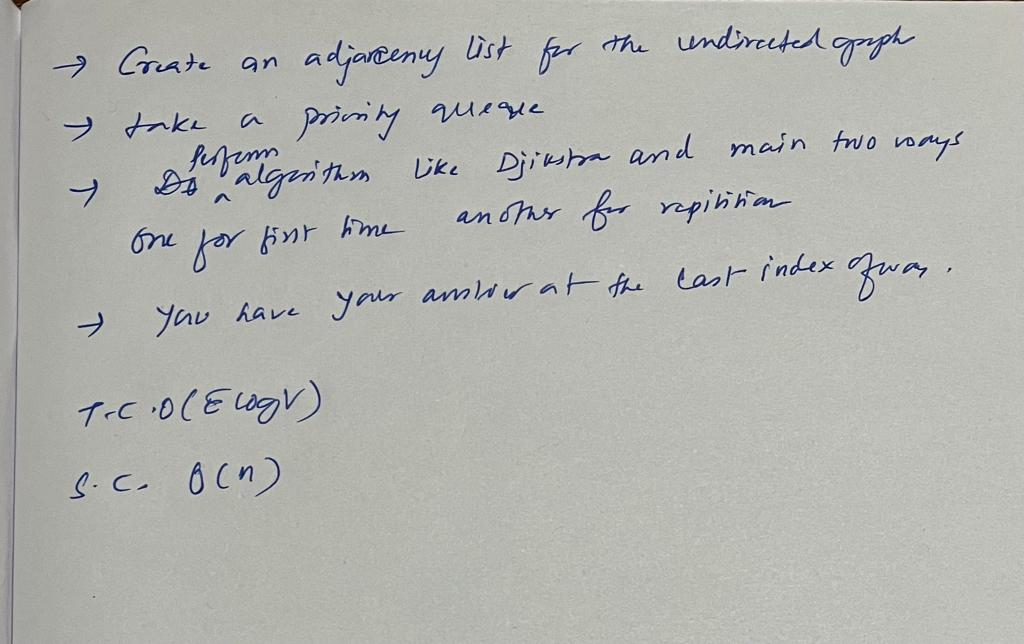 → Create an adjarcency list for the undirected graph
→ take a priority queque
perform
→ algorithm like Djikstra and main two ways
One for first time another for repitition
→ You have your answer at the last index of way.
T.C.O(E logV)
S.C. O(n)